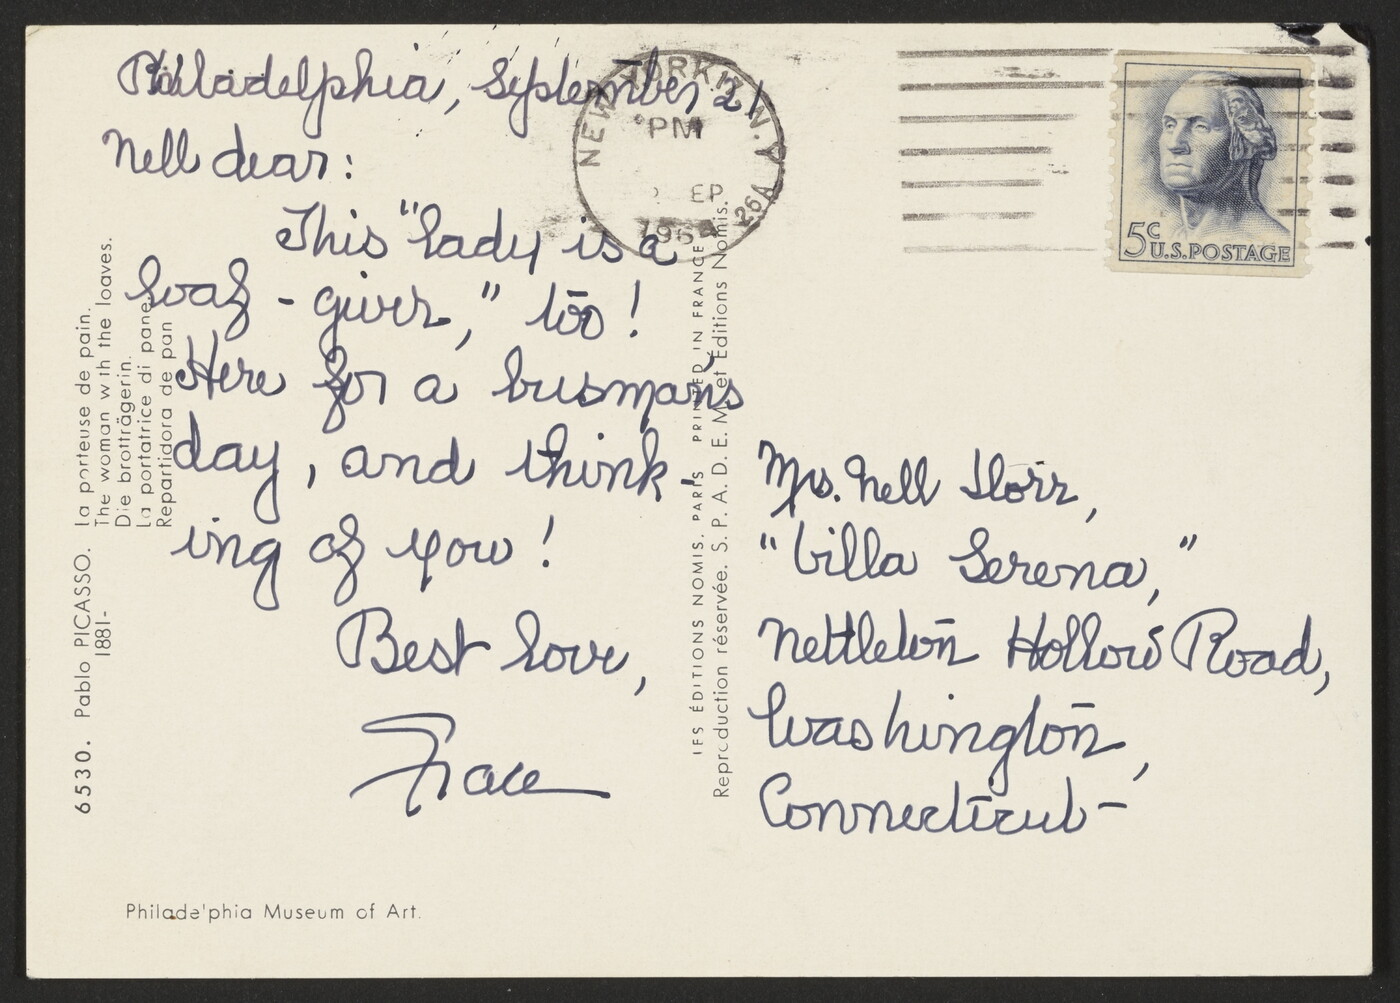 Philadelphia, September 21
Nell dear:
This "lady is a
loaf-giver," too!
Here for a busman's
day, and think-
ing of you!
Best love,
Grace
NEW YORK, N.Y.
PM
1964
26A
5c
U.S. POSTAGE
Mrs. Nell Dorr,
"Villa Serena,"
Nettleton Hollow Road,
Washington,
Connecticut-
6530. Pablo PICASSO. La porteuse de pain.
1881- The woman with the loaves.
Die brotträgerin.
La portatrice di pane.
Repartidora de pan
LES ÉDITIONS NOMIS. PARIS PRINTED IN FRANCE
Reproduction réservée. S. P. A. D. E. M. et Éditions Nomis.
Philadelphia Museum of Art.